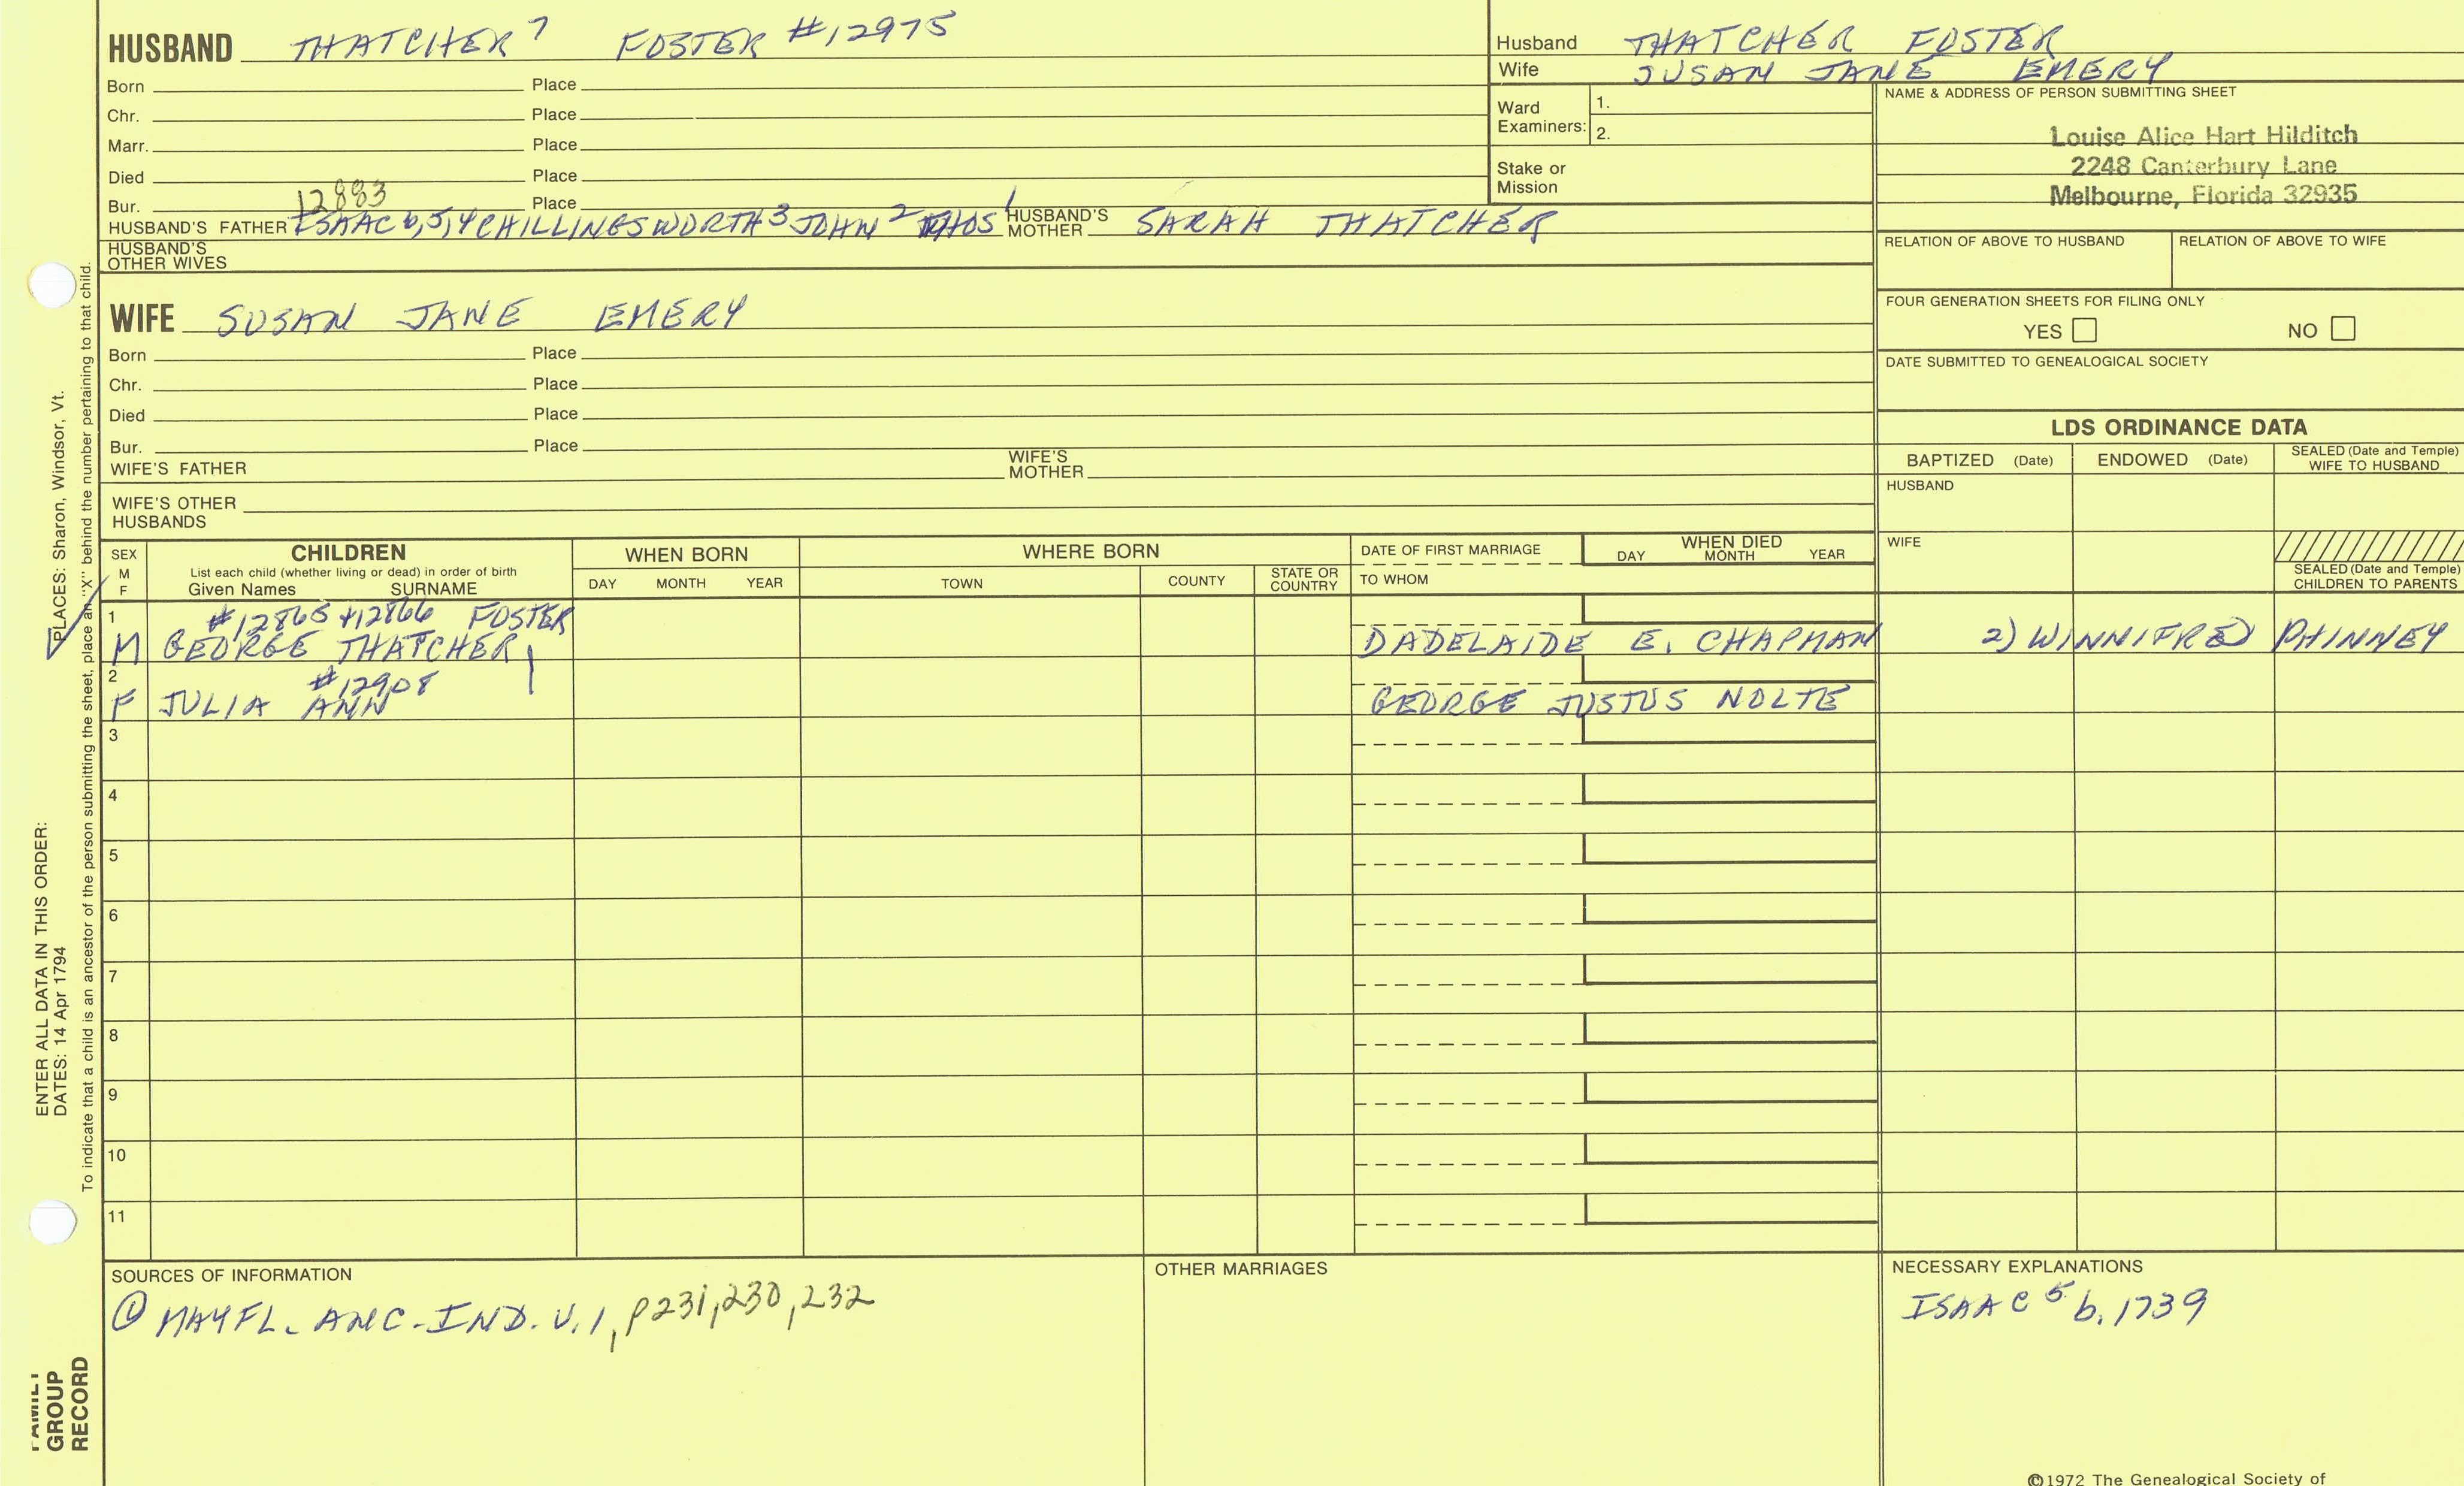 HUSBAND THATCHER 7 FOSTER #12975
Born Place
Chr. Place
Marr. Place
Died Place
12883
Bur. Place
HUSBAND'S FATHER ISAAC 6,5,4 CHILLINGSWORTH 3 JOHN 2 THOS 1 HUSBAND'S MOTHER SARAH THATCHER
HUSBAND'S OTHER WIVES
Husband THATCHER FOSTER
Wife SUSAN JANE EMERY
Ward Examiners: 1.
2.
Stake or Mission
NAME & ADDRESS OF PERSON SUBMITTING SHEET
Louise Alice Hart Hilditch
2248 Canterbury Lane
Melbourne, Florida 32935
RELATION OF ABOVE TO HUSBAND RELATION OF ABOVE TO WIFE
FOUR GENERATION SHEETS FOR FILING ONLY
YES NO
DATE SUBMITTED TO GENEALOGICAL SOCIETY
WIFE SUSAN JANE EMERY
Born Place
Chr. Place
Died Place
Bur. Place
WIFE'S FATHER WIFE'S MOTHER
WIFE'S OTHER HUSBANDS
LDS ORDINANCE DATA
BAPTIZED (Date) ENDOWED (Date) SEALED (Date and Temple) WIFE TO HUSBAND
HUSBAND
WIFE
SEALED (Date and Temple) CHILDREN TO PARENTS
SEX M F
CHILDREN
List each child (whether living or dead) in order of birth
Given Names SURNAME
WHEN BORN
DAY MONTH YEAR
WHERE BORN
TOWN COUNTY STATE OR COUNTRY
DATE OF FIRST MARRIAGE
TO WHOM
WHEN DIED
DAY MONTH YEAR
1 #12865 +12866 FOSTER
M GEORGE THATCHER 1) ADELAIDE E. CHAPMAN 2) WINNIFRED PHINNEY
2 #12908
F JULIA ANN GEORGE JUSTUS NOLTE
3
4
5
6
7
8
9
10
11
SOURCES OF INFORMATION
① MAYFL. ANC. IND. V.1, p231,230,232
OTHER MARRIAGES
NECESSARY EXPLANATIONS
ISAAC 5 b. 1739
©1972 The Genealogical Society of
ENTER ALL DATA IN THIS ORDER:
DATES: 14 Apr 1794
PLACES: Sharon, Windsor, Vt.
To indicate that a child is an ancestor of the person submitting the sheet, place an "X" behind the number pertaining to that child.
FAMILY
GROUP
RECORD